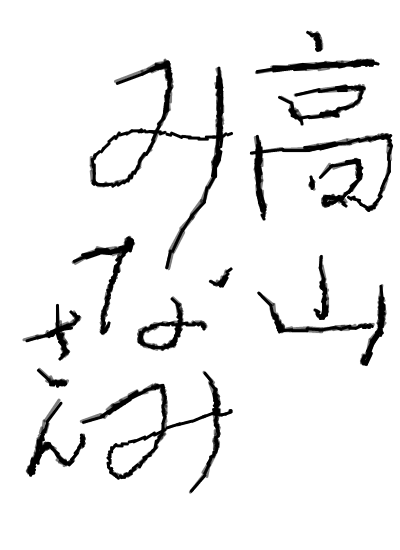 高山
みなみ
さん